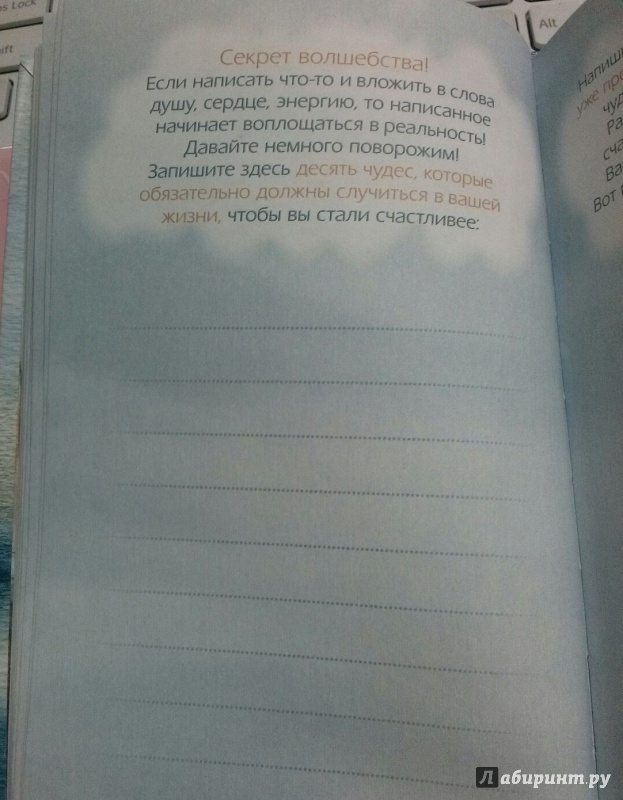 ns Lock
Alt
Секрет волшебства!
Если написать что-то и вложить в слова
душу, сердце, энергию, то написанное
начинает воплощаться в реальность!
Давайте немного поворожим!
Запишите здесь десять чудес, которые
обязательно должны случиться в вашей
жизни, чтобы вы стали счастливее:
Вот
Лабиринт.ру